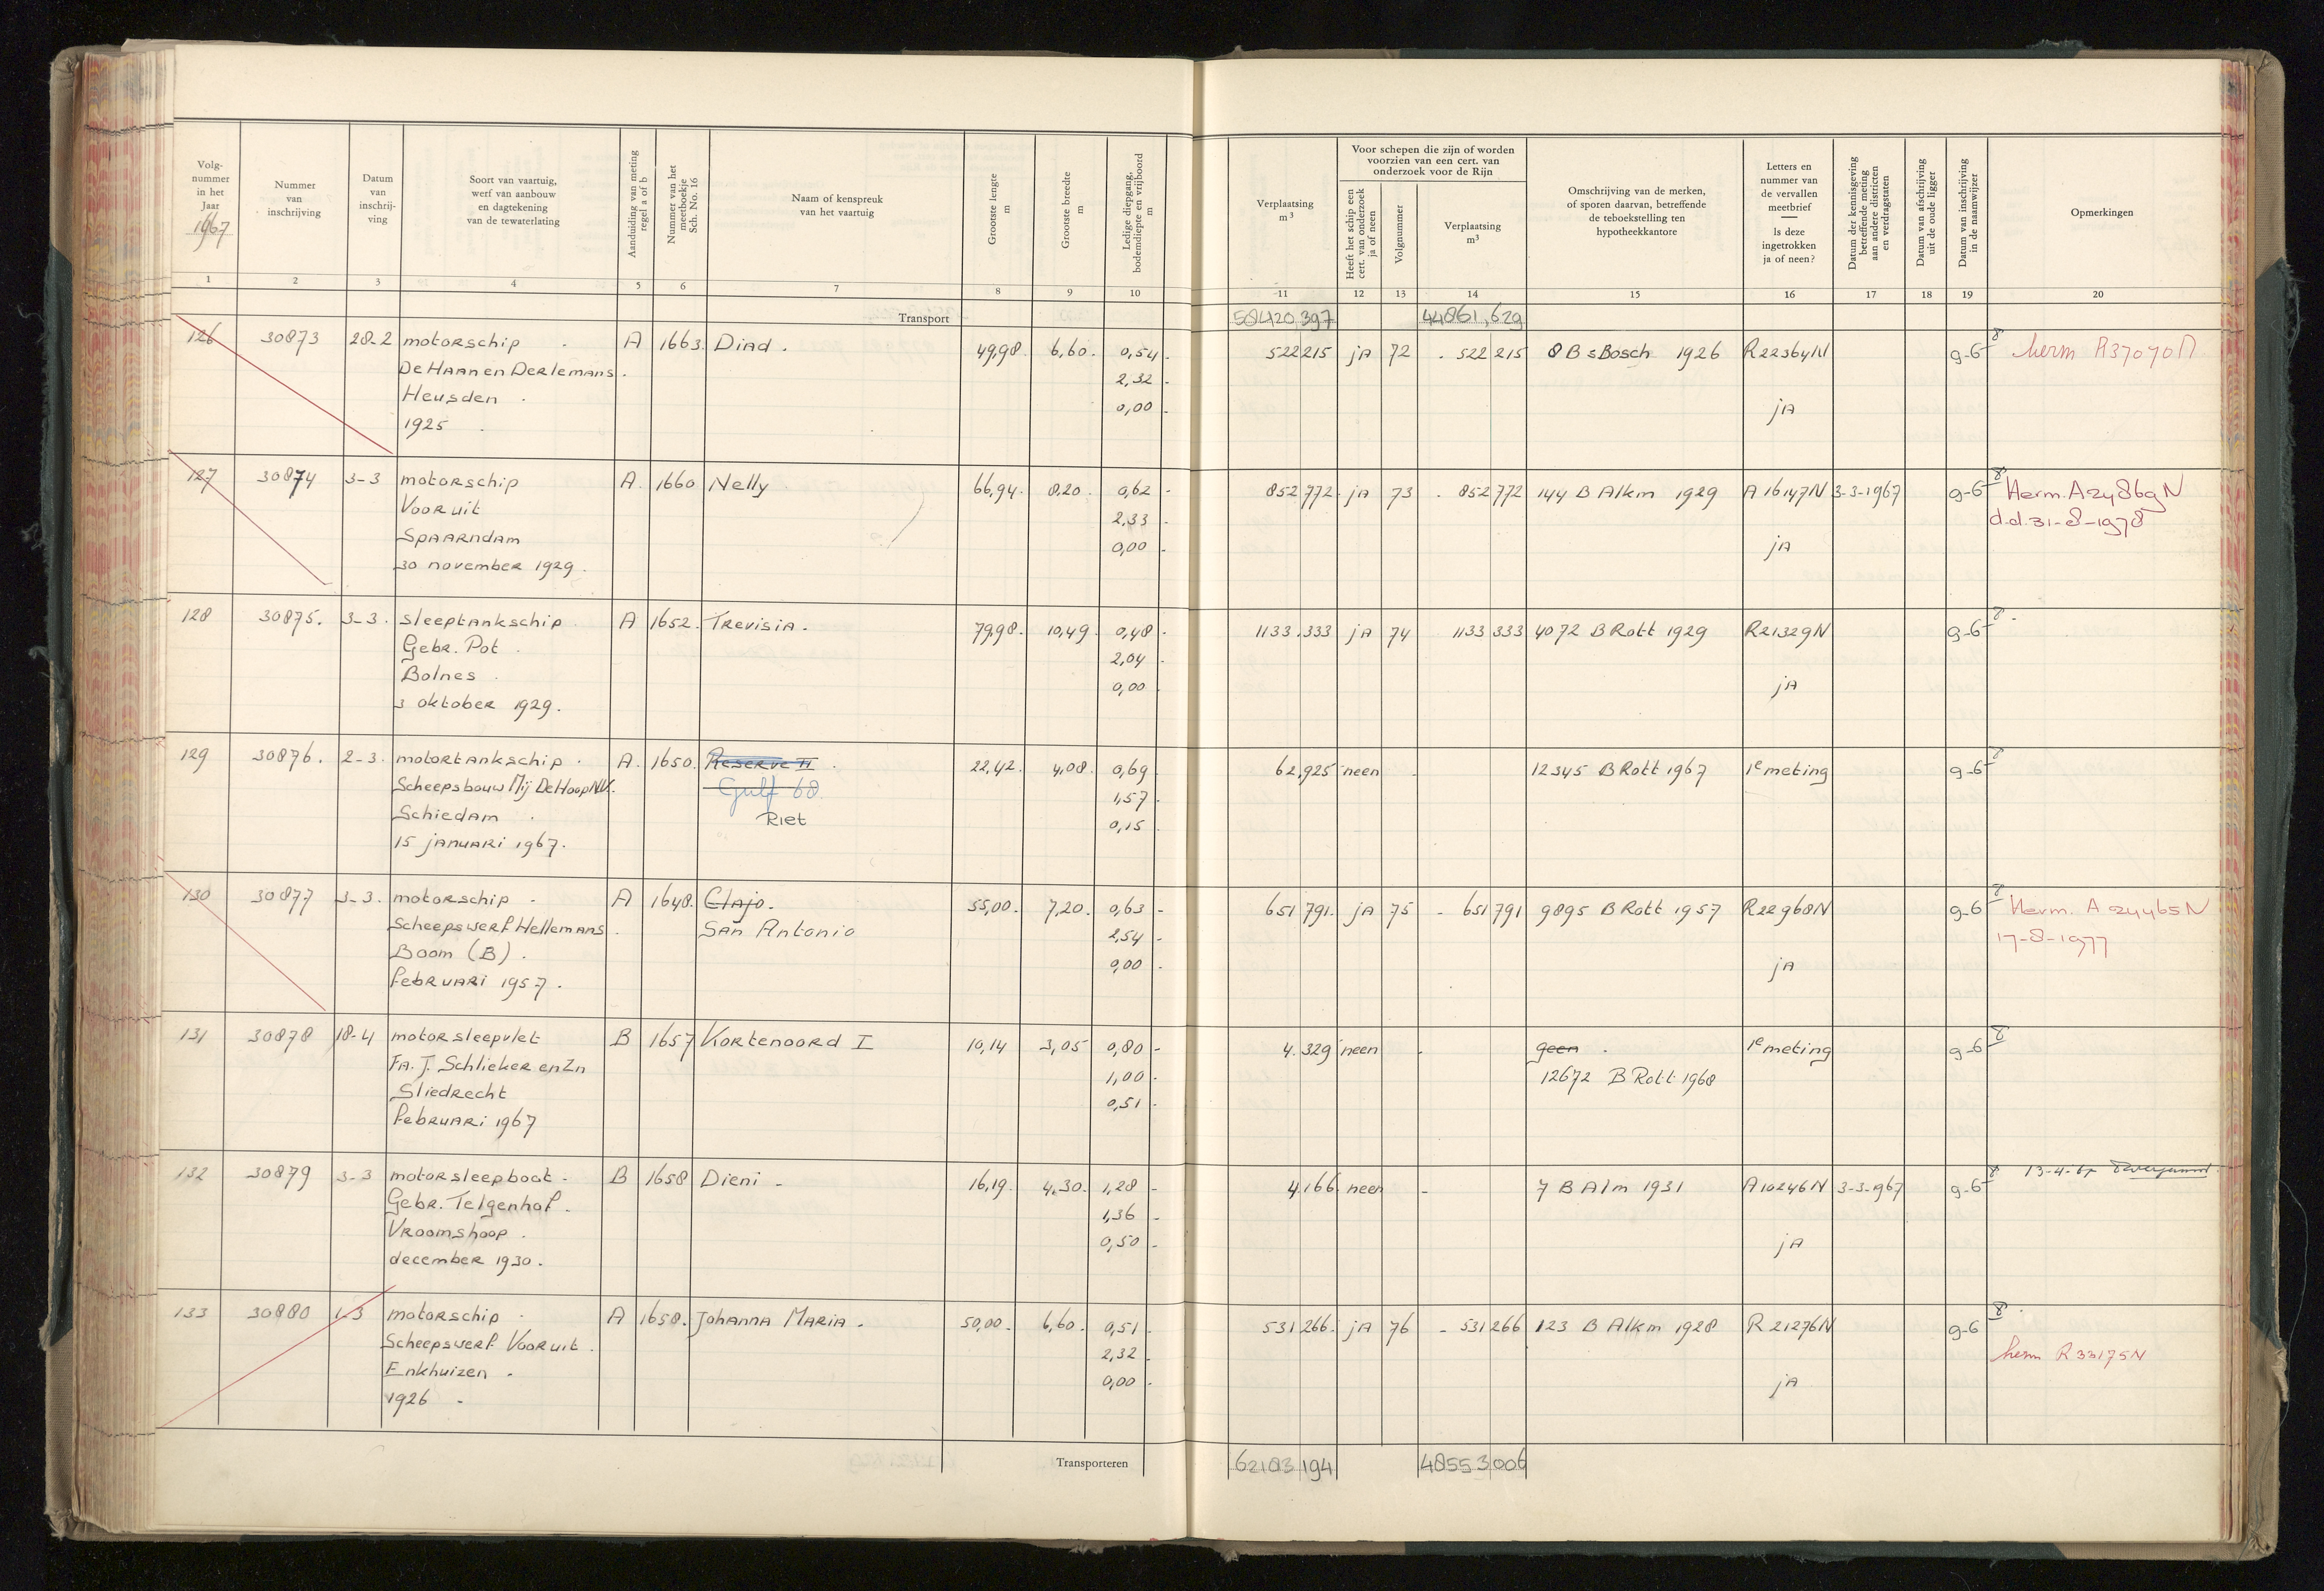 Volg-
nummer
in het
Jaar
1967
Nummer
van
inschrijving
Datum
van
inschrij-
ving
Soort van vaartuig,
werf van aanbouw
en dagtekening
van de tewaterlating
Aanduiding van meting
regel a of b
Nummer van het
meetboekje
Sch. No. 16
Naam of kenspreuk
van het vaartuig
Grootste lengte
m
Grootste breedte
m
Ledige diepgang,
bodemdiepte en vrijboord
m
Verplaatsing
m³
Voor schepen die zijn of worden
voorzien van een cert. van
onderzoek voor de Rijn
Heeft het schip een
cert. van onderzoek
ja of neen
Volgnummer
Verplaatsing
m³
Omschrijving van de merken,
of sporen daarvan, betreffende
de teboekstelling ten
hypotheekkantore
Letters en
nummer van
de vervallen
meetbrief
Is deze
ingetrokken
ja of neen?
Datum der kennisgeving
betreffende meting
aan andere districten
en verdragstaten
Datum van afschrijving
uit de oude ligger
Datum van inschrijving
in de naamwijzer
Opmerkingen
1 2 3 4 5 6 7 8 9 10 11 12 13 14 15 16 17 18 19 20
Transport 58420,397 44861,629
126 30873 28-2 motorschip A 1663. Diad. 49,98. 6,60. 0,54 522215 jA 72 522215 8 B sBosch 1926 R22364N 9-6 8 herm R37070N
De Haan en Derlemans. 2,32
Heusden 0,00 jA
1925
127 30874 3-3 motorschip A. 1660 Nelly 66,94. 8,20. 0,62 852772 jA 73 852772 144 B Alkm 1929 A16147N 3-3-1967 9-6 8 Herm. A24869N
Vooruit 2,33 d.d. 31-8-1978
Spaarndam 0,00 jA
30 november 1929.
128 30875. 3-3. sleeptankschip A 1652. Trevisia. 79,98. 10,49. 0,48 1133.333 jA 74 1133 333 4072 B Rott 1929 R21329N 9-6 8
Gebr. Pot 2,04
Bolnes 0,00 jA
3 oktober 1929.
129 30876. 2-3. motortankschip. A. 1650. Reserve II 22,42. 4,08. 0,69 62,925 neen 12345 B Rott 1967 1e meting 9-6 8
Scheepsbouw Mij De Hoop N.V. Gulf 68 1,57
Schiedam Riet 0,15
15 januari 1967.
130 30877 3-3. motorschip A 1648. Etajo. 55,00. 7,20. 0,63 651 791. jA 75 651791 9895 B Rott 1957 R22968N 9-6 8 Herm. A 24465N
Scheepswerf Hellemans. San Antonio 2,54 17-8-1977
Boom (B). 0,00 jA
februari 1957.
131 30878 18-4 motorsleepvlet B 1657 Kortenoord I 10,14 3,05 0,80 4.329 neen geen 1e meting 9-6 8
Fa. J. Schlieker en Zn 1,00 12672 B Rott 1968
Sliedrecht 0,51
februari 1967
132 30879 3-3 motorsleepboot. B 1658 Dieni 16,19. 4,30. 1,28 4.166 neen 7 B Alm 1931 A10246N 3-3-1967 9-6 8 13-4-67
Gebr. Telgenhof. 1,36
Vroomshoop. 0,50 jA
december 1930.
133 30880 1-3 motorschip A 1658. Johanna Maria. 50,00. 6,60. 0,51 531266. jA 76 531266 123 B Alkm 1928 R 21276N 9-6 8
Scheepswerf Vooruit. 2,32 herm R33175N
Enkhuizen. 0,00 jA
1926
Transporteren 62183,194 48553,006